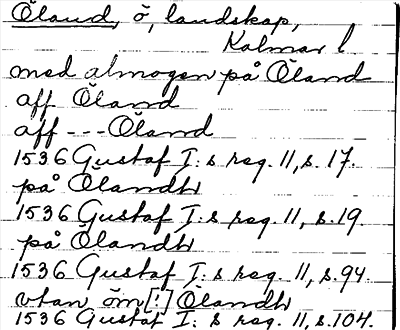 Öland, ö, landskap,
Kalmar l
med almogen på Öland
aff Öland
aff - - - Öland
1536 Gustaf I:s reg. 11, s. 17.
på Ölandh
1536 Gustaf I:s reg. 11, s. 19
på Ölandh
1536 Gustaf I:s reg. 11, s. 94.
vtan öm [!] Ölandh
1536 Gustaf I:s reg. 11, s. 104.